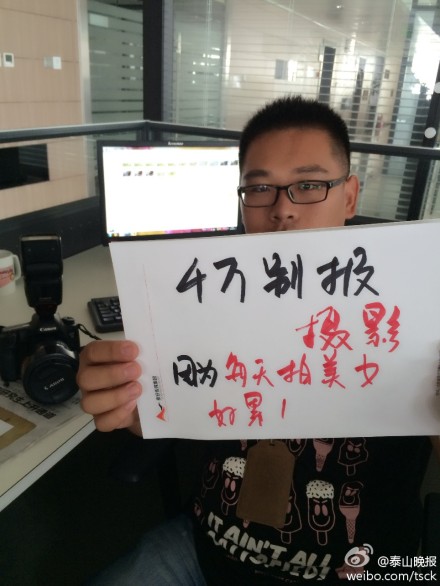 4万别报
摄影
因为每天拍美女
好累!
IT AIN'T ALL
@泰山晚报
weibo.com/tsck